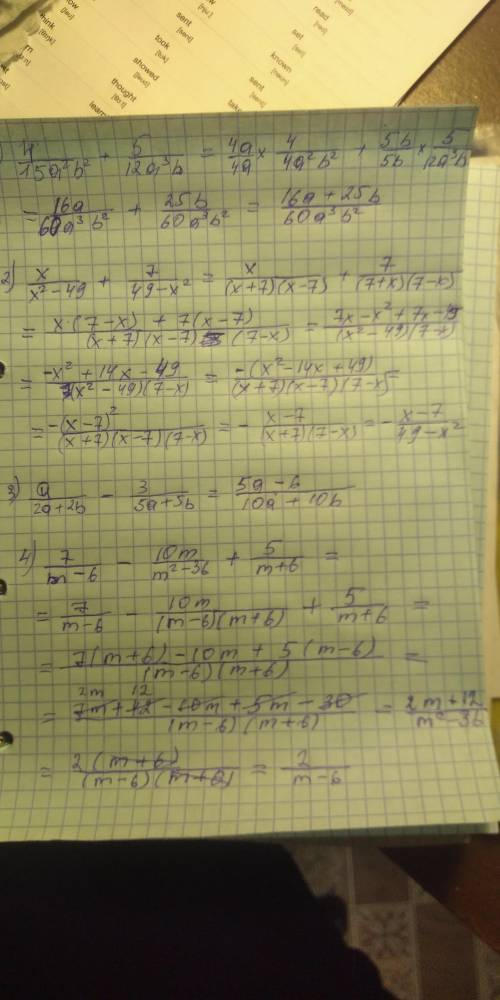 think
took
[tʊk]
sent
[sent]
set
[set]
read
thought
showed
known
sent
[sent]
4/(15a²b²) + 5/(12a³b) = 4a/4a × 4/(4a²b²) + 5b/5b × 5/(12a³b)
= 16a/(60a³b²) + 25b/(60a³b²) = (16a + 25b)/(60a³b²)
2) x/(x² - 49) + 7/(49 - x²) = x/((x+7)(x-7)) + 7/((7+x)(7-x))
= (x·(7-x) + 7(x-7))/((x+7)(x-7)(7-x)) = (7x - x² + 7x - 49)/((x² - 49)(7-x))
= (-x² + 14x - 49)/((x² - 49)(7-x)) = -(x² - 14x + 49)/((x+7)(x-7)(7-x)) =
= -(x-7)²/((x+7)(x-7)(7-x)) = - (x-7)/((x+7)(7-x)) = - (x-7)/(49-x²)
3) a/(2a+2b) - 3/(5a+5b) = (5a - 6)/(10a + 10b)
4) 7/(m-6) - 10m/(m²-36) + 5/(m+6) =
= 7/(m-6) - 10m/((m-6)(m+6)) + 5/(m+6) =
= (7(m+6) - 10m + 5(m-6))/((m-6)(m+6)) =
2m 12
= (7m + 42 - 10m + 5m - 30)/((m-6)(m+6)) = (2m + 12)/(m² - 36)
= 2(m+6)/((m-6)(m+6)) = 2/(m-6)